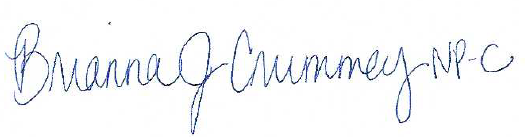 Brianna J Crummey NP-C